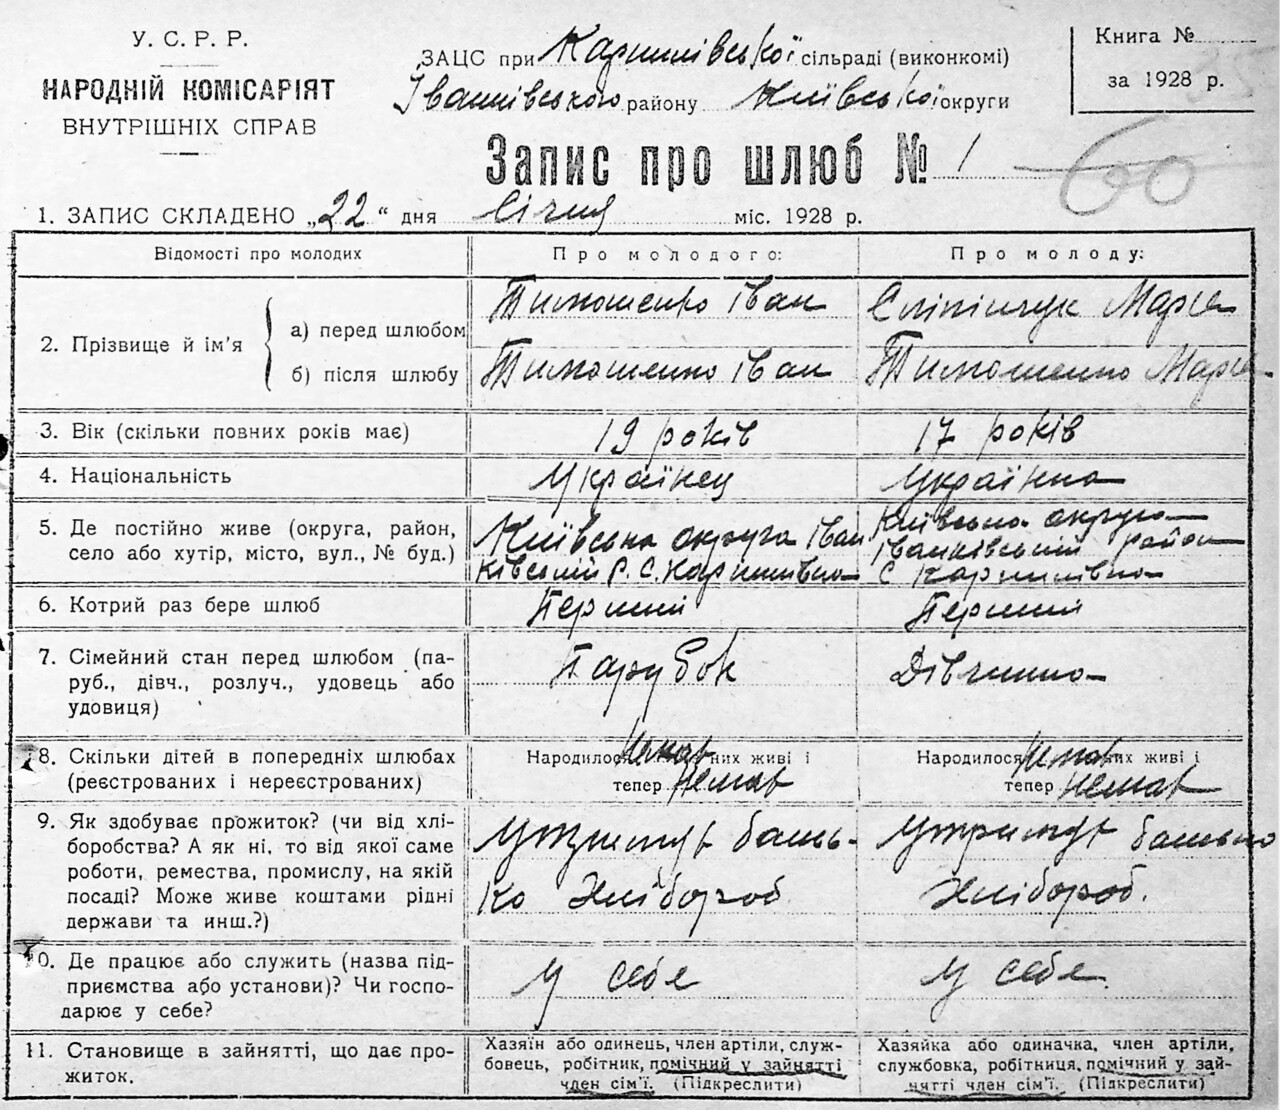 У. С. Р. Р.
НАРОДНІЙ КОМІСАРІЯТ
ВНУТРІШНІХ СПРАВ
ЗАЦС при Каришківської сільраді (виконкомі)
Іванківського району Київської округи
Книга №
за 1928 р.
Запис про шлюб № 1
60
1. ЗАПИС СКЛАДЕНО „22“ дня Січня міс. 1928 р.
Відомості про молодих
Про молодого:
Про молоду:
2. Прізвище й ім'я
а) перед шлюбом
Тимошенко Іван
Сліпінчук Марія
б) після шлюбу
Тимошенко Іван
Тимошенко Марія
3. Вік (скільки повних років має)
19 років
17 років
4. Національність
Українец
Українка
5. Де постійно живе (округа, район,
село або хутір, місто, вул., № буд.)
Київська округа Іван
ківский р. с.
Київська округа
Іванківський район
с
6. Котрий раз бере шлюб
Перший
Перший
7. Сімейний стан перед шлюбом (па-
руб., дівч., розлуч., удовець або
удовиця)
Парубок
Дівчина
8. Скільки дітей в попередніх шлюбах
(реєстрованих і нереєстрованих)
Народилося Немає них живі і
тепер Немає
Народилося Немає них живі і
тепер Немає
9. Як здобуває прожиток? (чи від хлі-
боробства? А як ні, то від якої саме
роботи, ремества, промислу, на якій
посаді? Може живе коштами рідні
держави та инш.?)
Утримує бать-
ко Хлібороб
Утримує батько
Хлібороб.
10. Де працює або служить (назва під-
приємства або установи)? Чи госпо-
дарює у себе?
У себе
У себе
11. Становище в зайнятті, що дає про-
житок.
Хазяїн або одинець, член артілі, служ-
бовець, робітник, помічний у зайнятті
член сім'ї. (Підкреслити)
Хазяйка або одиначка, член артілі,
службовка, робітниця, помічна у зай-
нятті член сім'ї. (Підкреслити)